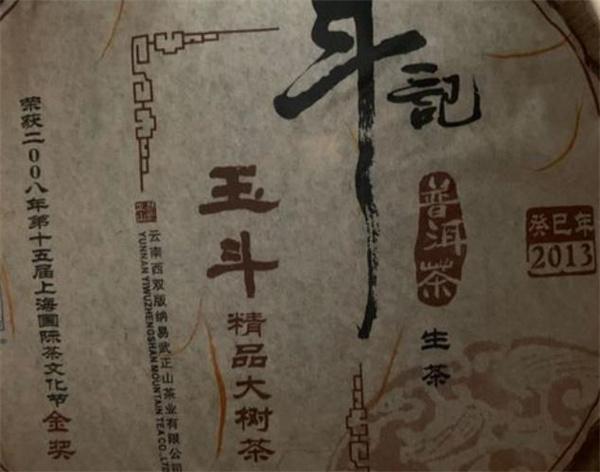 斗記
普洱茶
生茶
癸巳年
2013
玉斗
精品大树茶
云南西双版纳易武正山茶业有限公司
YUNNAN YIWUZHENGSHAN MOUNTAIN TEA CO.,LTD
荣获二00八年第十五届上海国际茶文化节金奖